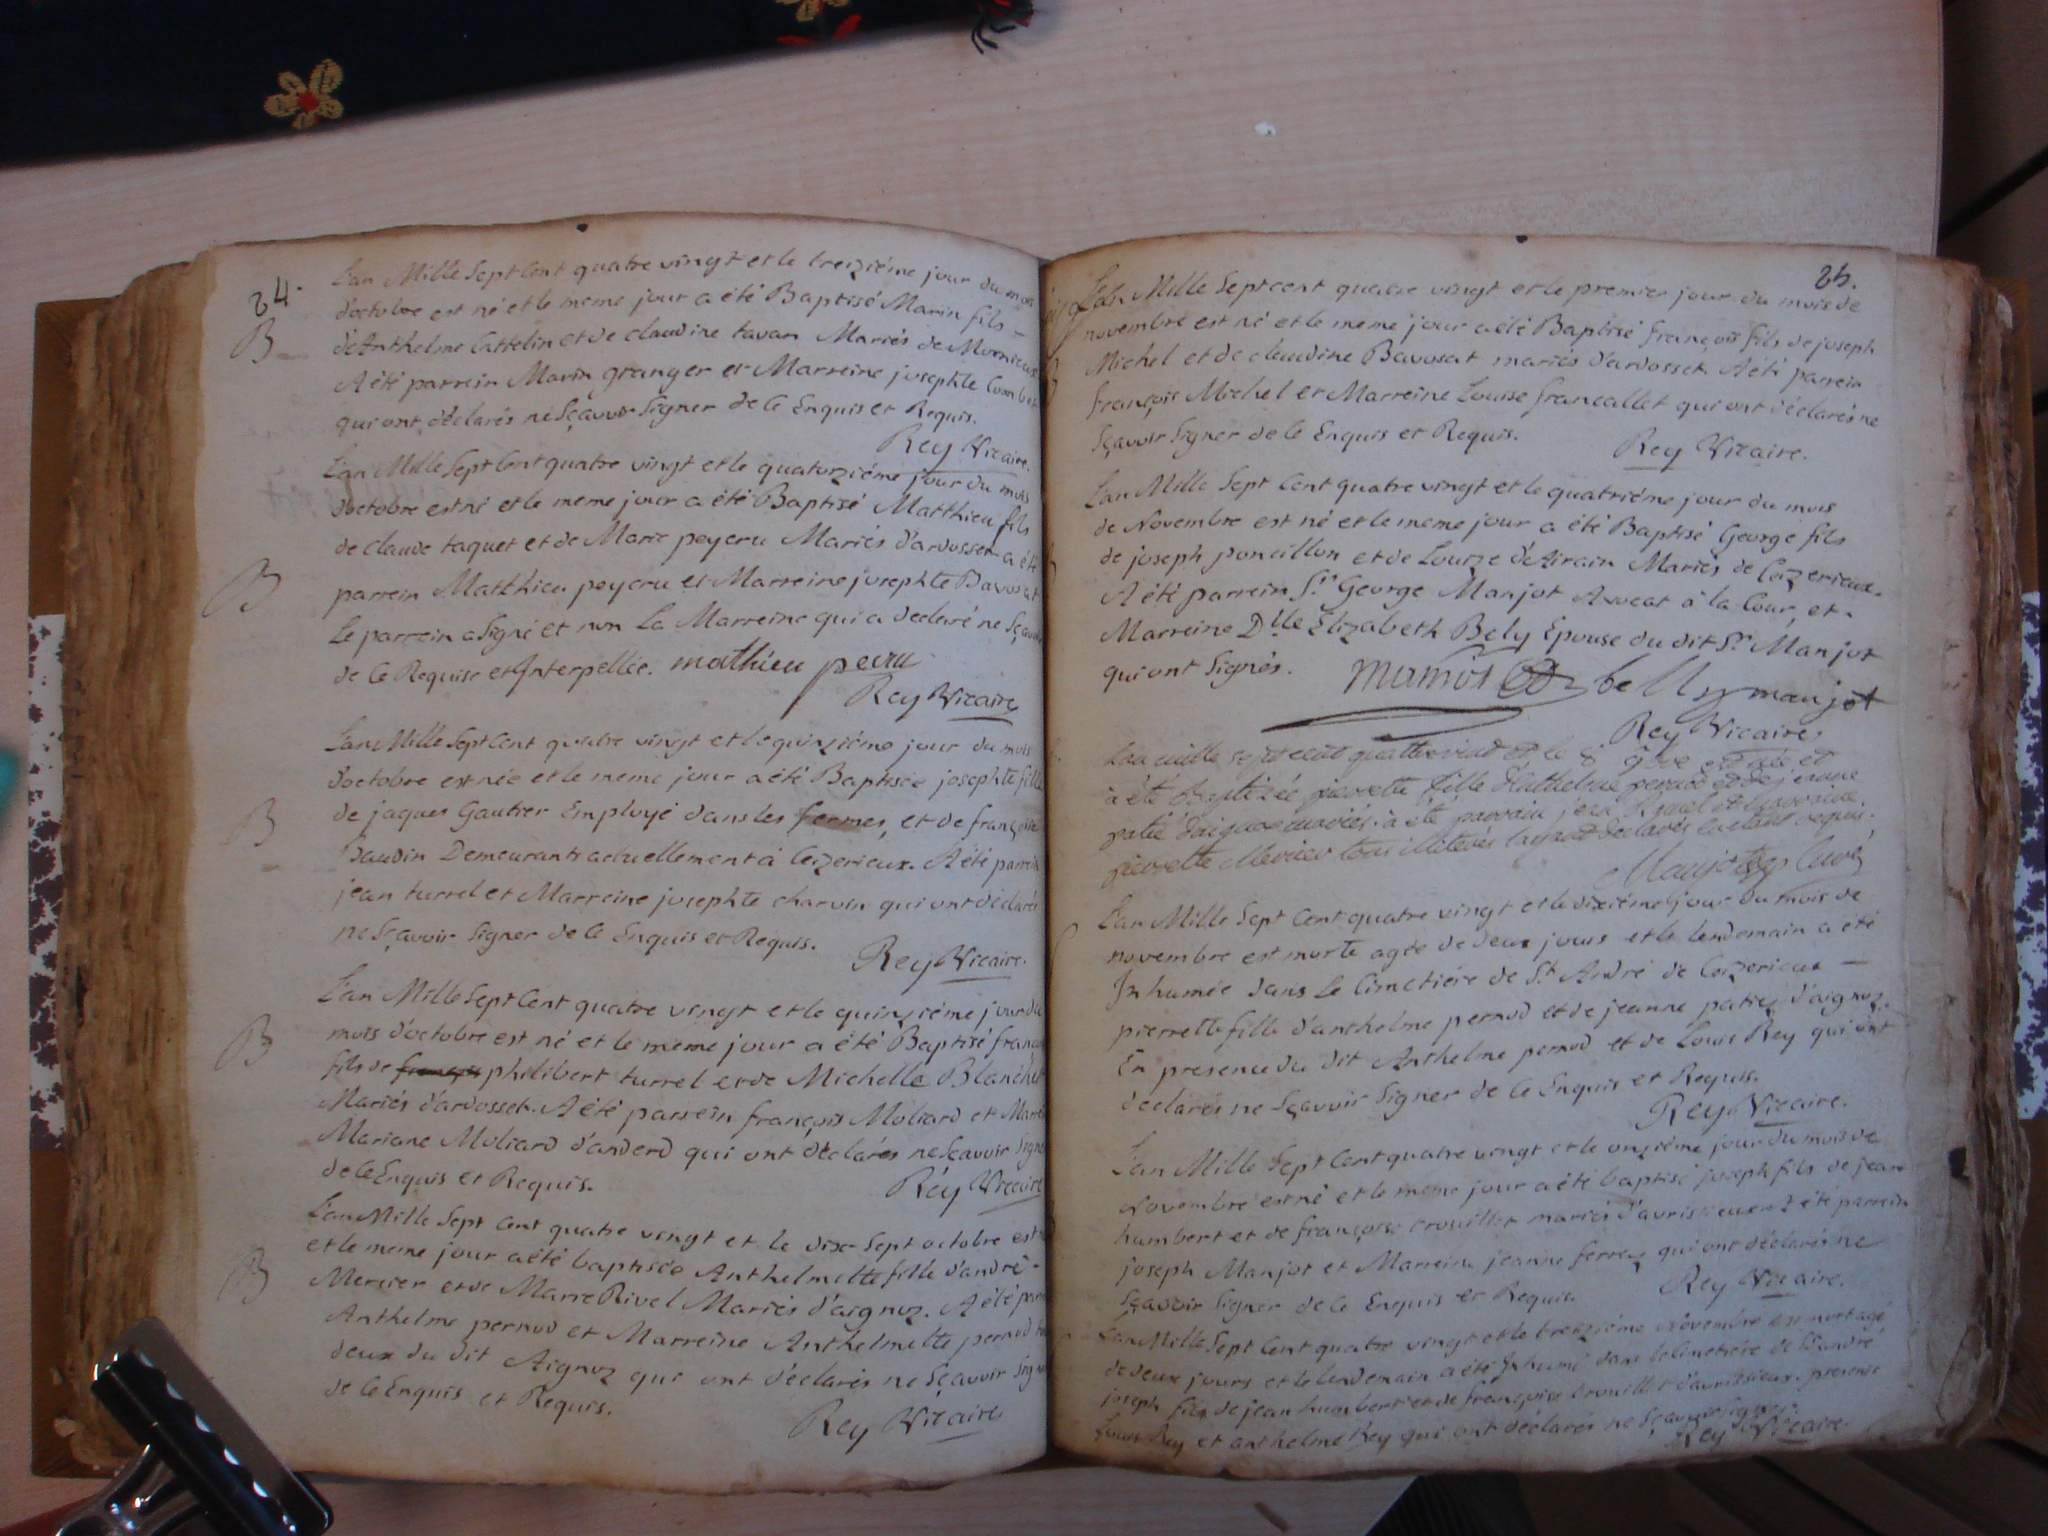 24.
L'an Mille Sept Cent quatre vingt et le treizième jour du mois
d'octobre est né et le meme jour a été Baptisé Marin fils -
d'Anthelme Cattelin et de claudine tavan Mariés de Mornieux
A été parrein Marin granger et Marreine josephte Combet
qui ont déclarés ne Sçavoir Signer de Ce Enquis et Requis.
Rey Vicaire.
B
L'an Mille Sept Cent quatre vingt et le quatorzième jour du mois
d'octobre est né et le meme jour a été Baptisé Matthieu fils
de claude taquet et de Marie peyeru Mariés d'ardosset a été
parrein Matthieu peyeru et Marreine josephte Bavosat
Le parrein a Signé et non La Marreine qui a declaré ne Sçavoir
de Ce Requise et Interpellée. mathieu
Rey Vicaire
B
L'an Mille Sept Cent quatre vingt et le quinzième jour du mois
d'octobre est née et le meme jour a été Baptisée josephte fille
de jaques Gautier Employé dans les fermes, et de françoise
Baudin Demeurant actuellement à Ceizerieux. A été parrein
jean turrel et Marreine josephte charvin qui ont déclarés
ne Sçavoir Signer de Ce Enquis et Requis.
Rey Vicaire.
B
L'an Mille Sept Cent quatre vingt et le quinzième jour du
mois d'octobre est né et le meme jour a été Baptisé françois
fils de françois philibert turrel et de Michelle Blanchet
Mariés d'ardosset. A été parrein françois Moliard et Marreine
Mariane Moliard d'anderd qui ont déclarés ne Sçavoir Signer
de Ce Enquis et Requis.
Rey Vicaire
B
L'an Mille Sept Cent quatre vingt et le dix Sept octobre est née
et le meme jour a été baptisée Anthelmette fille d'andré -
Mercier et de Marie Rivel Mariés d'aignoz. A été parrein
Anthelme pernod et Marreine Anthelmette pernod tous
deux du dit Aignoz qui ont déclarés ne Sçavoir Signer
de Ce Enquis et Requis.
Rey Vicaire
B
25.
L'an Mille Sept cent quatre vingt et le premier jour du mois de
novembre est né et le meme jour a été Baptisé françois fils de joseph
Michel et de claudine Bavosat mariés d'ardosset. A été parrein
françois Michel et Marreine Louise francallet qui ont déclarés ne
Sçavoir Signer de Ce Enquis et Requis.
Rey Vicaire.
L'an Mille Sept Cent quatre vingt et le quatrième jour du mois
de Novembre est né et le meme jour a été Baptisé George fils
de joseph poncillon et de Louize d'Airain Mariés de Ceizerieux.
A été parrein Sr George Manjot Avocat à la Cour, et -
Marreine Dlle Elizabeth Bely Epouse du dit Sr Manjot
qui ont Signés. manjot belly manjot
Rey Vicaire
L'an mille sept cent quattre vint et le 8e 9bre est née et
a été Baptizée pierrette fille d'Anthelme pernod et de jeanne
patié d'aignoz mariés. a été parrain jean
pierrette Mercier tous illiterés
Manjot Curé
L'an Mille Sept Cent quatre vingt et le dixième jour du mois de
novembre est morte agée de deux jours et le lendemain a été
Inhumée dans Le Cimetiére de St André de Ceizerieux -
pierrette fille d'anthelme pernod et de jeanne patiez d'aignoz.
En presence du dit Anthelme pernod et de Louis Rey qui ont
declarés ne Sçavoir Signer de Ce Enquis et Requis.
Rey Vicaire.
L'an Mille Sept Cent quatre vingt et le onzième jour du mois de
Novembre est né et le meme jour a été baptisé joseph fils de jean
humbert et de françoise Brouillet mariés d'avrissieux. A été parrein
joseph Manjot et Marreine jeanne ferrez qui ont déclarés ne
Sçavoir Signer de Ce Enquis et Requis.
Rey Vicaire.
L'an Mille Sept Cent quatre vingt et le treizième Novembre est mort agé
de deux jours et le lendemain a été Inhumé dans le Cimetiére de St André
joseph fils de jean humbert et de françoise Brouillet d'avrissieux. presents
Louis Rey et anthelme Rey qui ont déclarés ne Sçavoir Signer.
Rey Vicaire